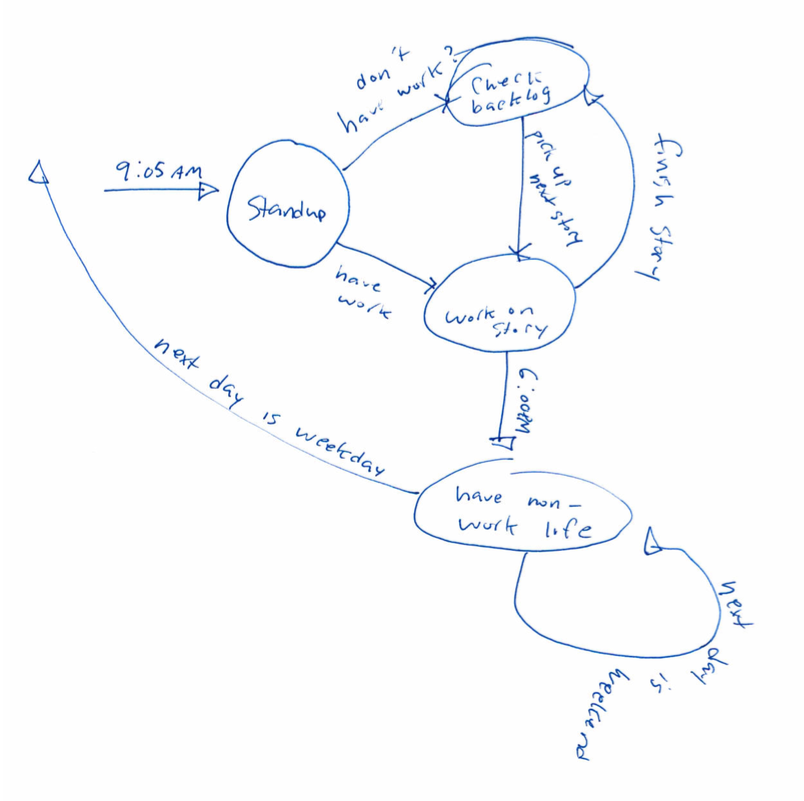 don't
have work?
Check
backlog
9:05 AM
Standup
pick up
next story
finish story
have
work
work on
story
6:00PM
next day is weekday
have non-
work life
next day is weekend